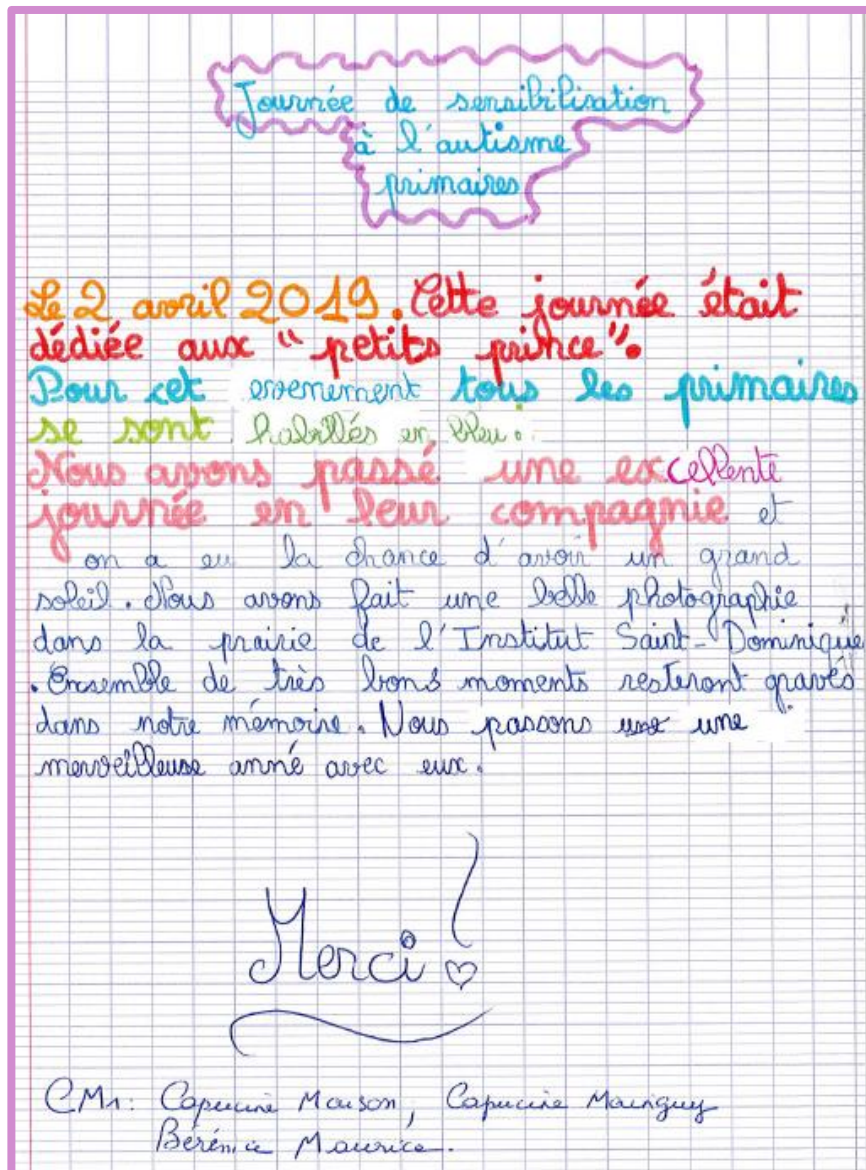 Journée de sensibilisation
à l'autisme
primaires
Le 2 avril 2019. Cette journée était
dédiée aux " petits prince".
Pour cet evenement tous les primaires
se sont habillés en bleu.
Nous avons passé une excellente
journée en leur compagnie et
on a eu la chance d'avoir un grand
soleil. Nous avons fait une belle photographie
dans la prairie de l'Institut Saint-Dominique
. Ensemble de très bons moments resteront gravés
dans notre mémoire. Nous passons une
merveilleuse anné avec eux.
Merci !
CM1: Capucine Maison, Capucine
Bérénice Maurice.